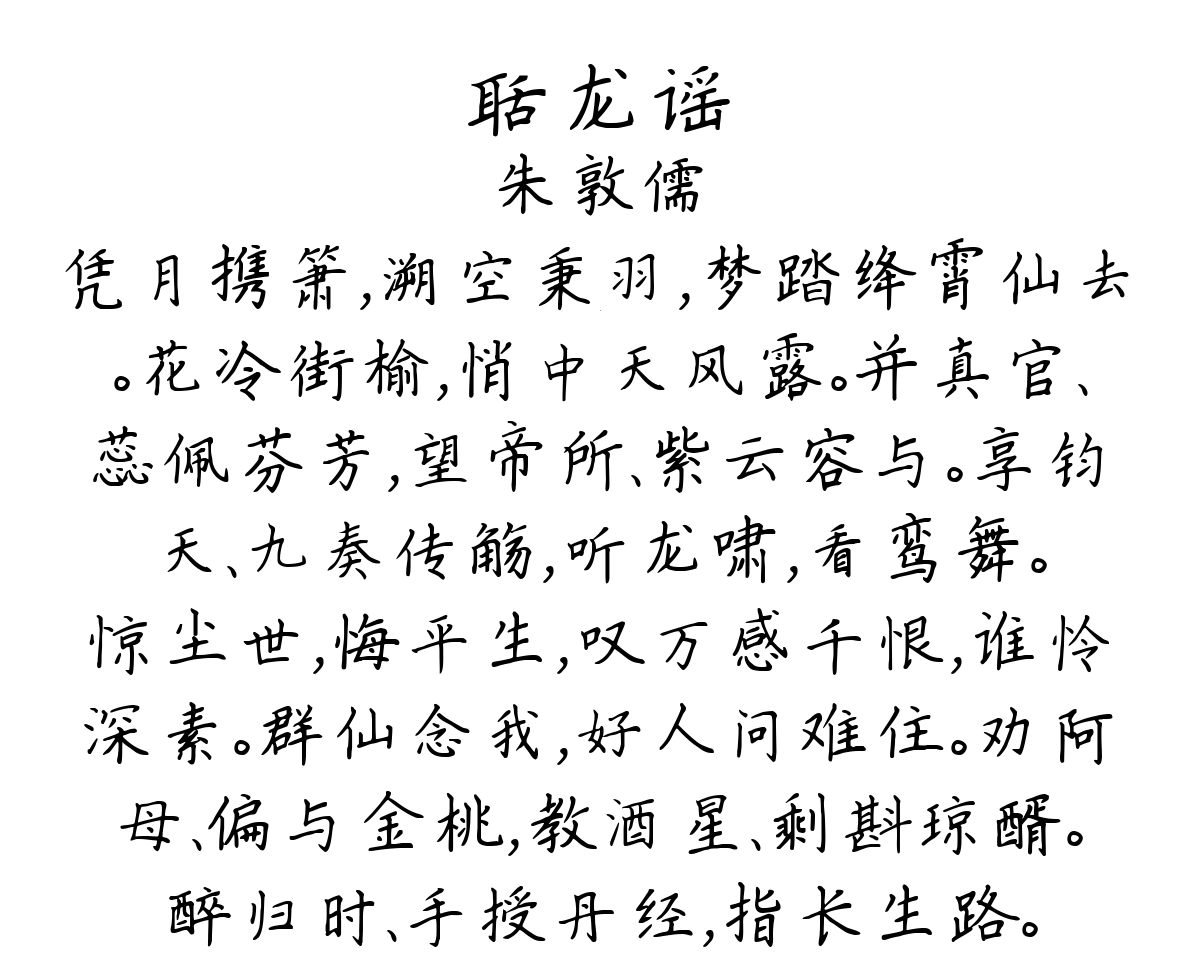 聒龙谣
朱敦儒
凭月携箫,溯空秉羽,梦踏绛霄仙去
。花冷街榆,悄中天风露。并真官、
蕊佩芬芳,望帝所、紫云容与。享钧
天、九奏传觞,听龙啸,看鸾舞。
惊尘世,悔平生,叹万感千恨,谁怜
深素。群仙念我,好人问难住。劝阿
母、偏与金桃,教酒星、剩斟琼醑。
醉归时、手授丹经,指长生路。